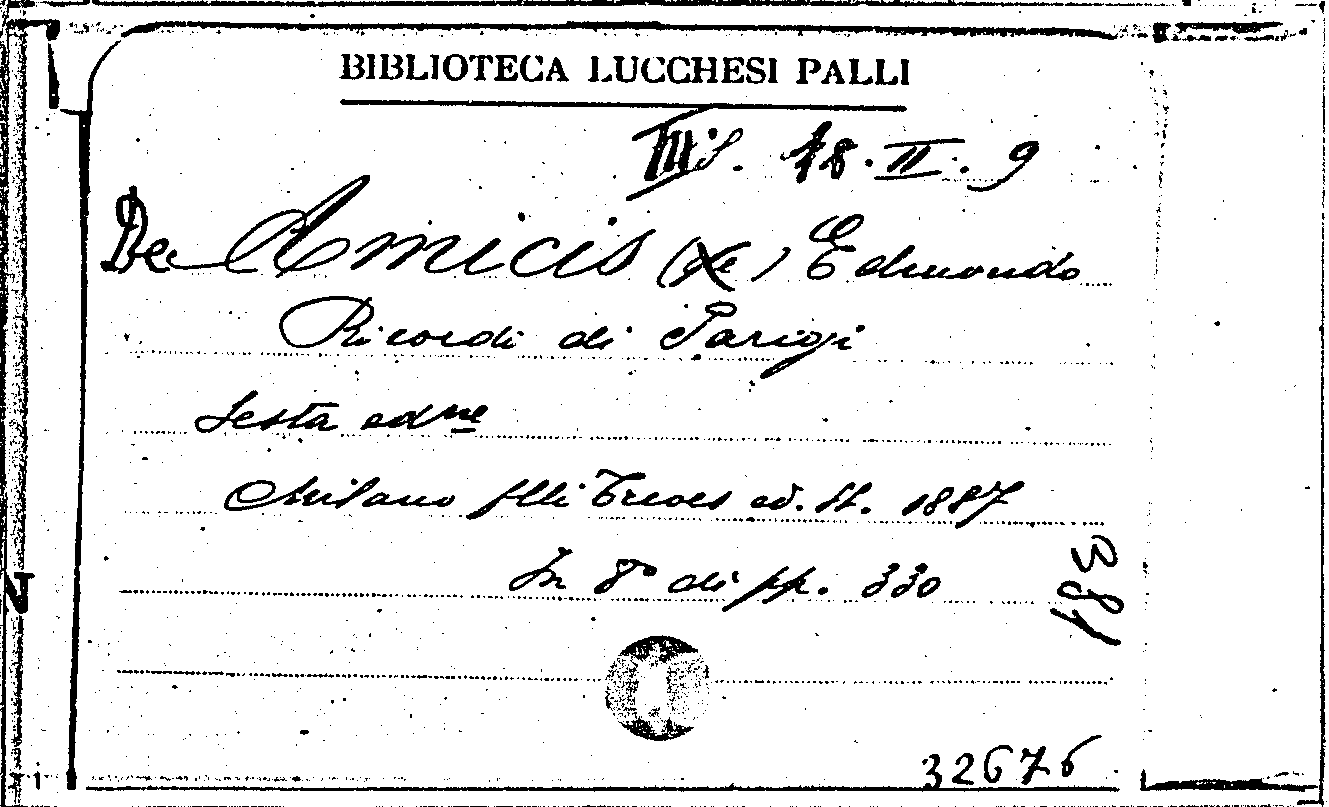 BIBLIOTECA LUCCHESI PALLI
18. II. 9
De Amicis (De) Edmondo
Ricordi di Parigi
Sesta ed.ne
Milano flli Treves ed. st. 1887
In 8° di pp. 330
183
32676